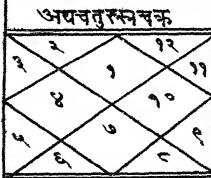 अथचतुरस्रचक्र
२ १२
३ १ ११
४ १०
५ ७ ९
६ ८